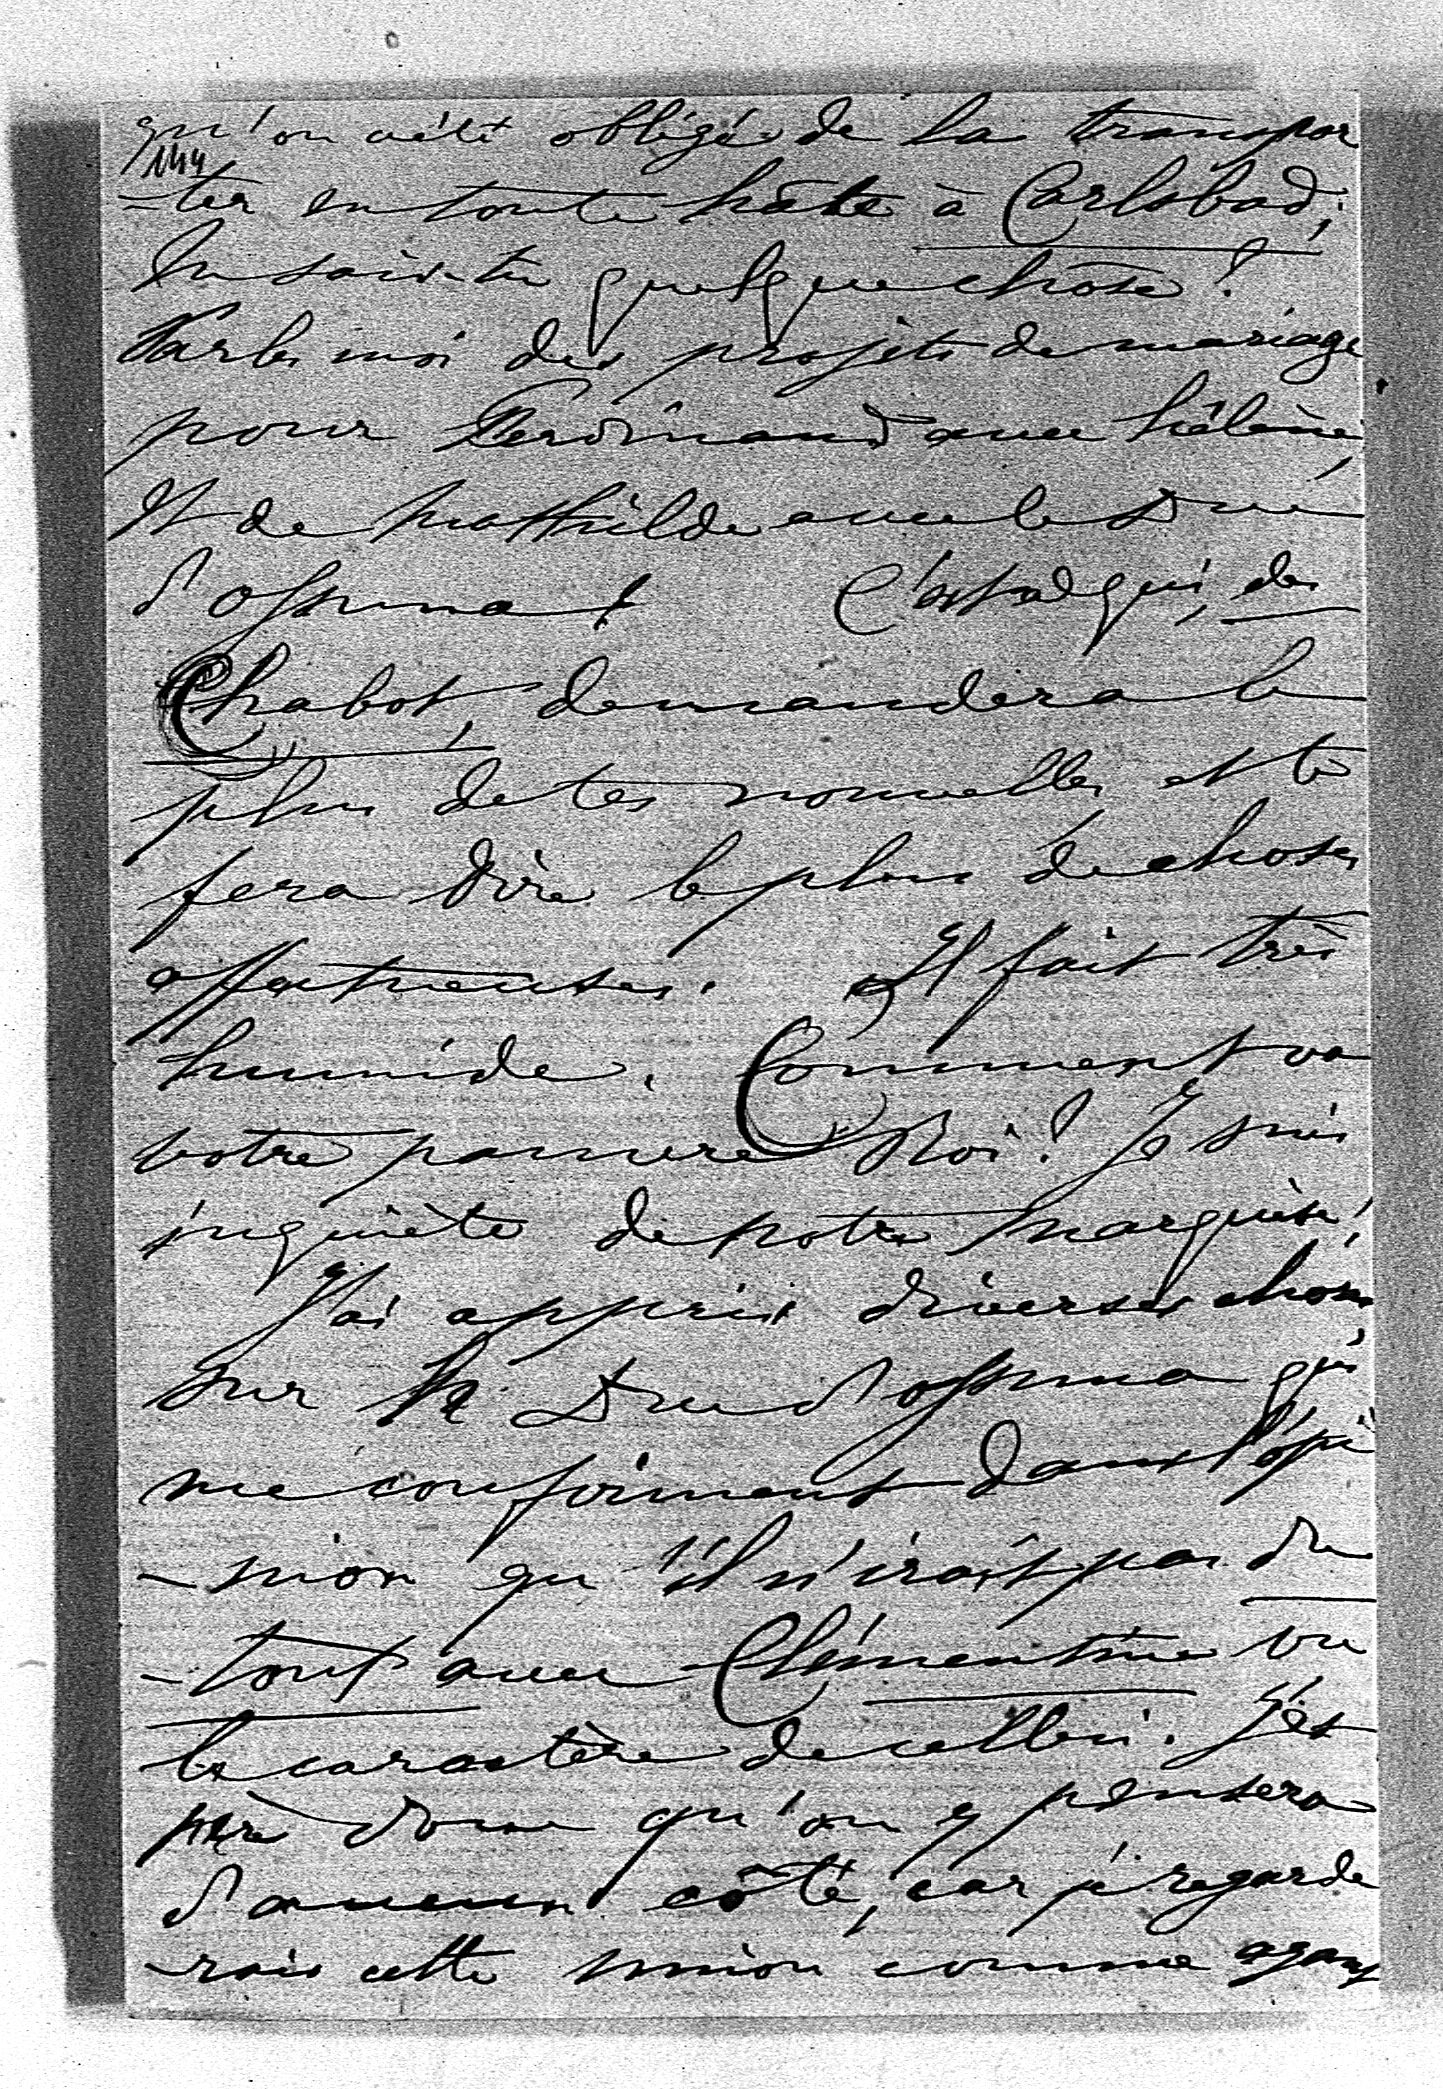 qu'on a été obligé de la transpor
144
-ter en toute hâte à Carlsbad;
En sais-tu quelque chose?
Parles moi des projets de mariage
pour Ferdinand avec hélène
Et de Mathilde avec le Duc
d'ossuna! C'est à qui, des
Chabot, demandera le
plus de tes nouvelles et te
fera dire le plus de choses
affectueuses. Il fait très
humide. Comment va
votre pauvre Roi? Je suis
inquiète de notre Marquise!
J'ai appris diverses choses
sur le Duc d'ossuna qui
me confirment dans l'opi
-nion qu'il n'irait pas du
-tout avec Clémentine vu
le caractère de celleci. J'es
père donc qu'on y pensera
d'aucun côté, car je regarde
-rais cette union comme ayant